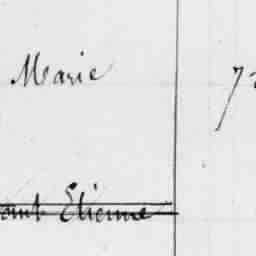 Marie
Saint Etienne